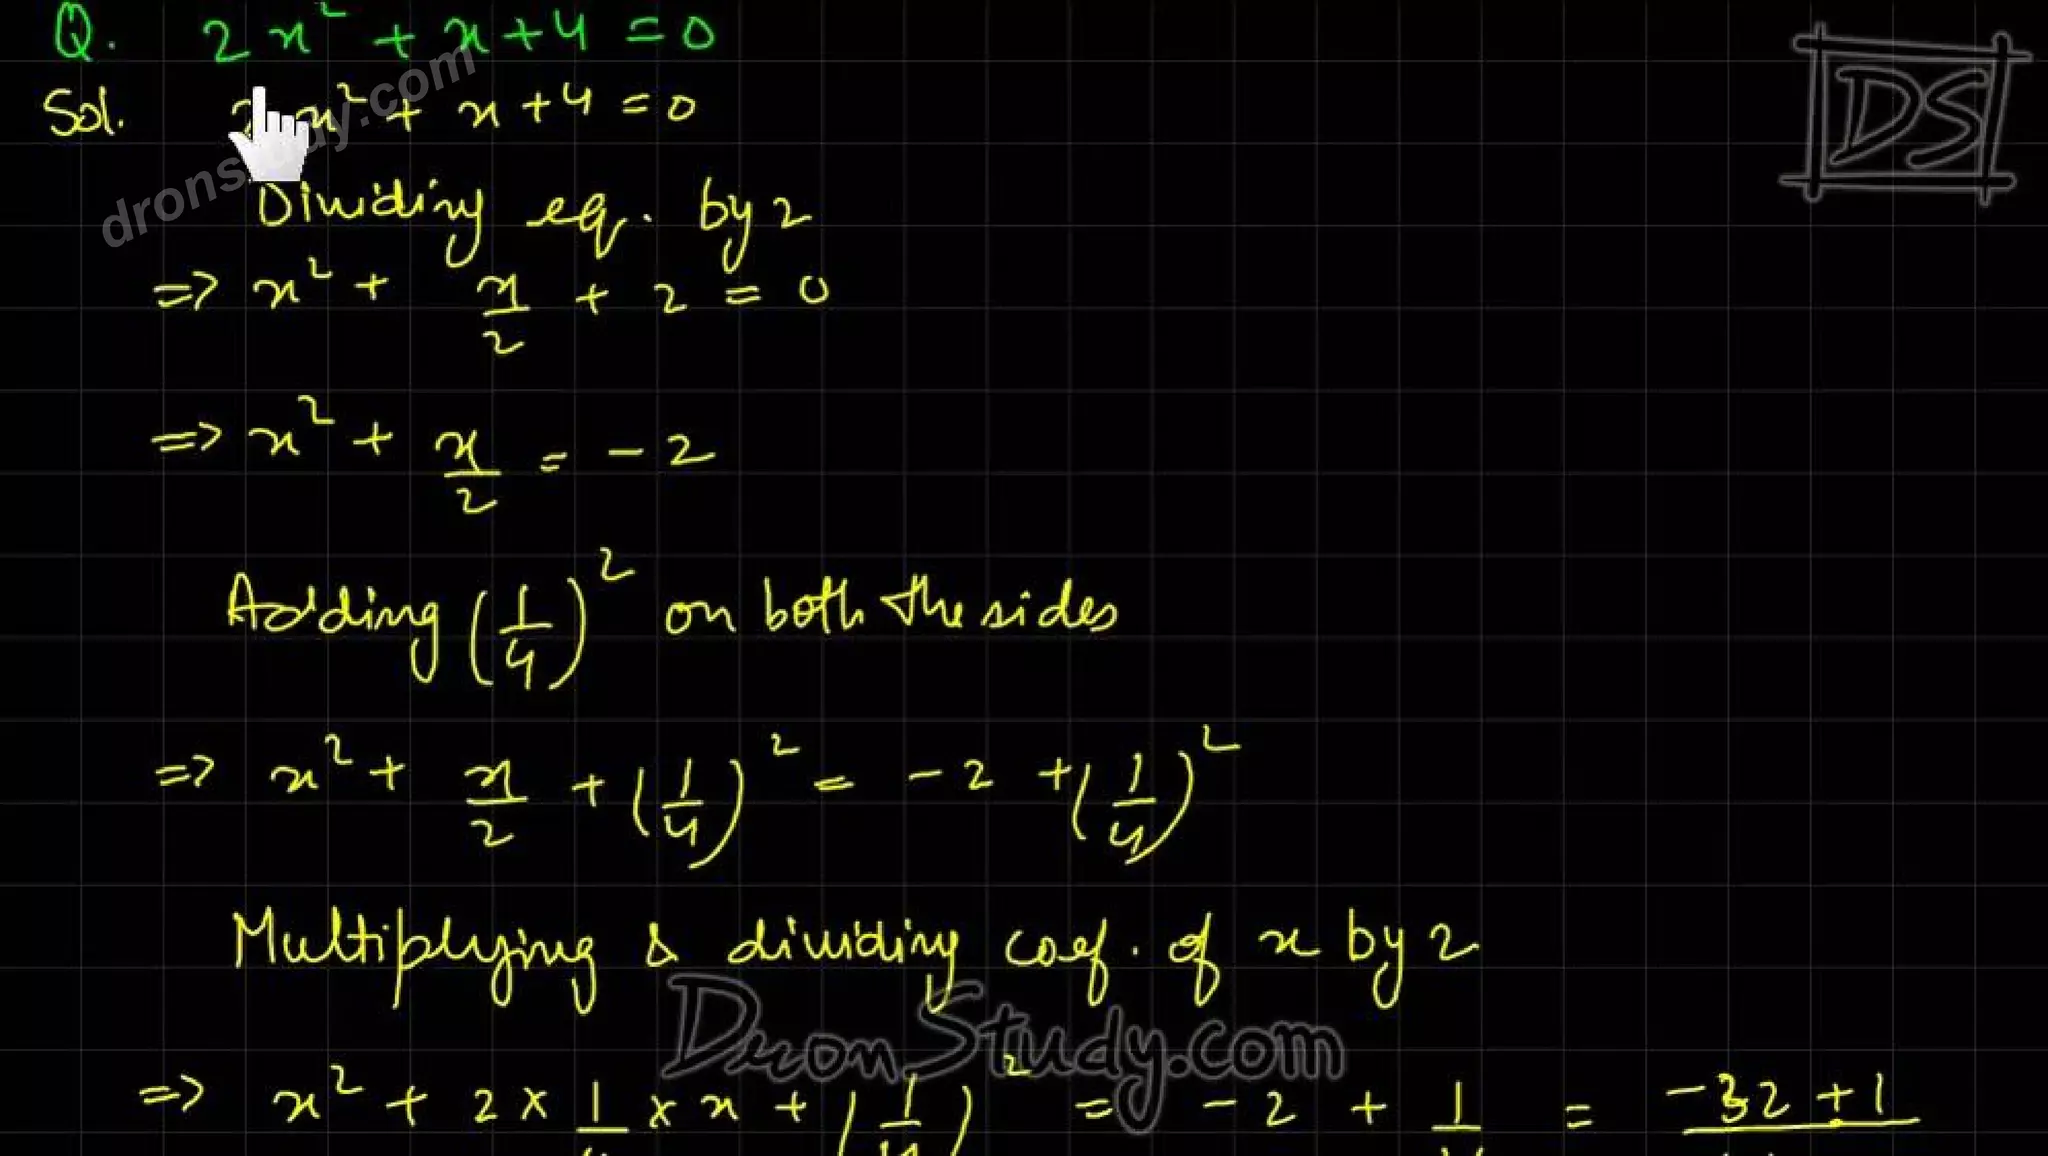 Q. 2x² + x + 4 = 0
Sol. 2x² + x + 4 = 0
dronstudy.com
DS
Dividing eq. by 2
=> x² + x/2 + 2 = 0
=> x² + x/2 = - 2
Adding (1/4)² on both the sides
=> x² + x/2 + (1/4)² = - 2 + (1/4)²
Multiplying & dividing coef. of x by 2
DronStudy.com
=> x² + 2 × 1/4 × x + (1/4)² = - 2 + 1/ = -32 + 1